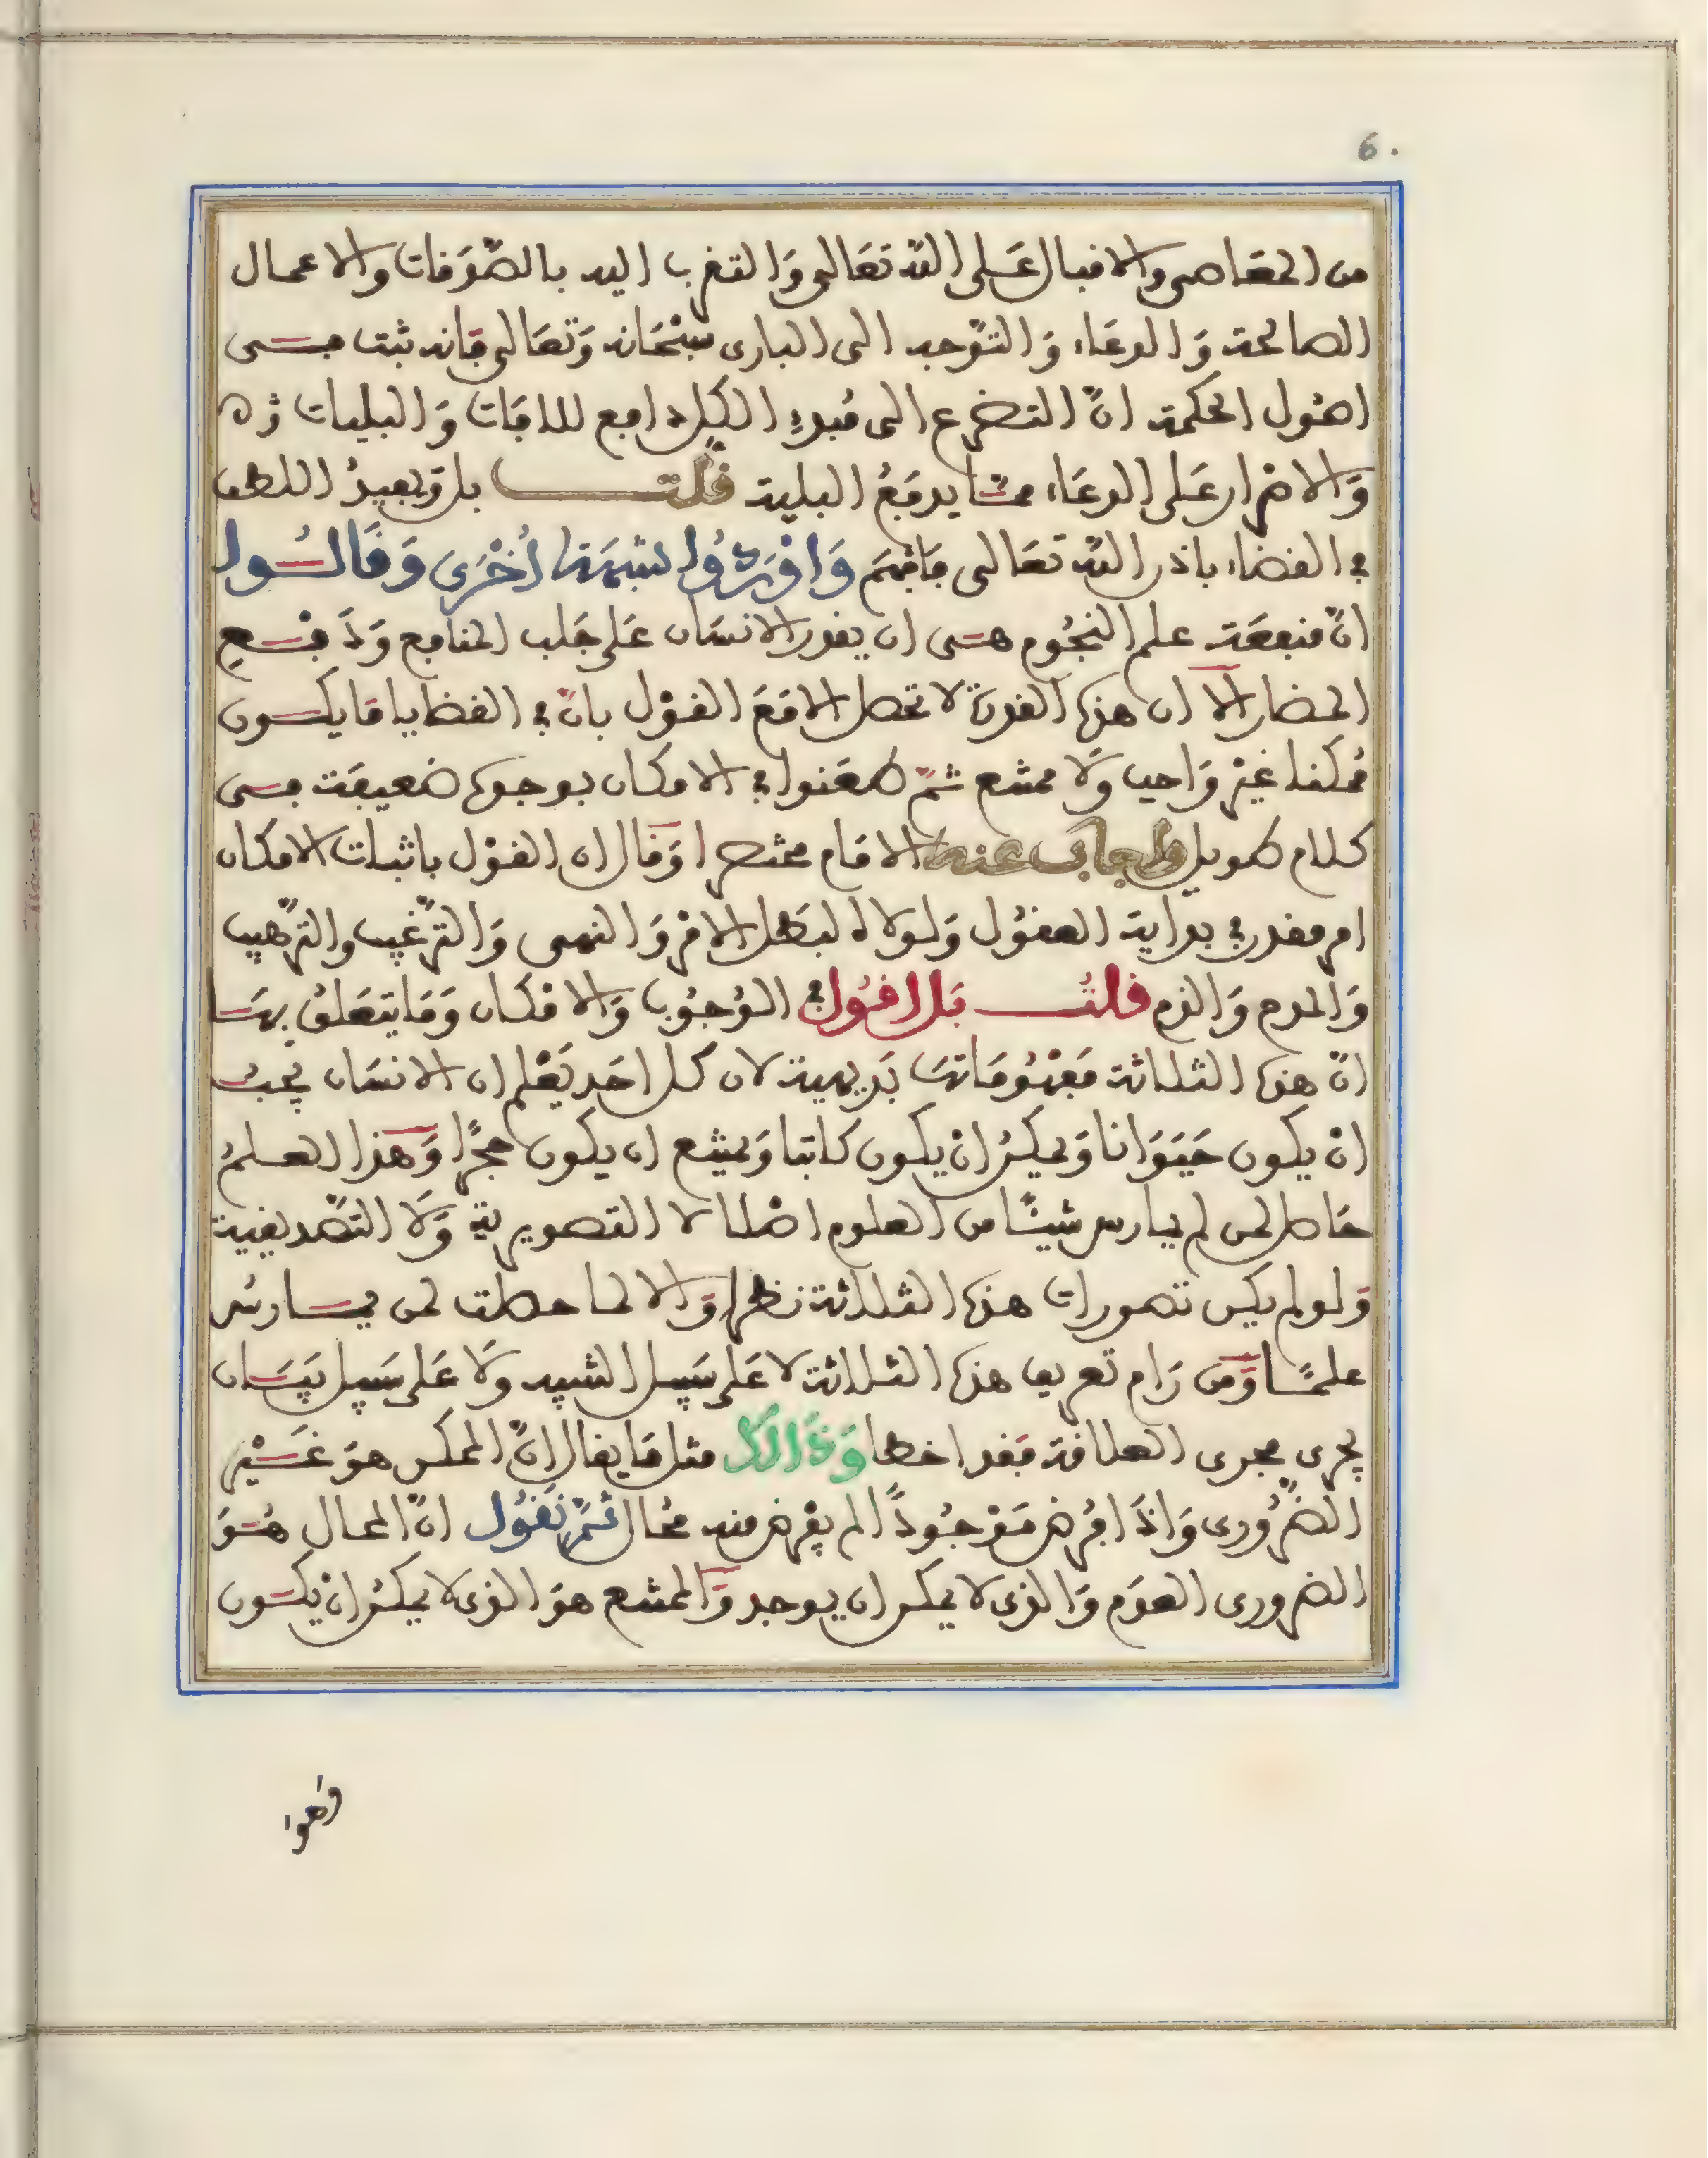 6.
من المعَاصى والاقبال عَلى اللّه تعَالى وَالتقرب اليه بالصّدَقات والاعمال
الصالحة وَالدعَاء وَالتوّجه الى البارى سبْحَانه وَتعَالى فَانه ثبت فى
اصُول الحكمة انّ التضرع الى مُبدءِ الكل دافع للافَات وَالبليات
وَالاصْرار عَلى الدعَاء ممّا يدفَعُ البلية قلت بل وَيفيدُ اللطف
في القضاء باذن اللّه تعَالى فَافهَم وَاوْرَدُوا شبهَة اُخْرَى وَقَالُوا
انّ منفعَة علم النجُوم هى ان يقدر الانسَان عَلى جَلب المنافع وَدَفْع
المضار الا ان هذه القدرة لا تحصل الا مَعَ القوْل بانّ في القضايا مَا يكون
مُمكنا غيْر وَاجب وَلَا ممتنع ثمّ طعَنوا في الامكان بوجوه ضعيفَة فى
كلام طويل واجاب عنه الامَام مختصرا وَقال ان القوْل باثبات الامكان
امر مقدر في بداية العقُول وَلولاه لبَطل الامْر وَالنهى وَالترّغيب والترّهيب
وَالمدح وَالذم قلتُ بَل اقُول في الوُجوُب وَالامْكان وَمَا يتعَلقُ بهَا
انّ هذه الثلاثة مَفهُومَاتهَا بَديهية لان كل احَد يَعْلم ان الانسَان يجبُ
انْ يكون حَيَوَانا وَيمكنُ انْ يكون كاتبا وَيمتنع ان يكون حجرًا وَهَذا العلمُ
حَاصل لمن لم يمارس شيئًا من العلوم اصْلا لا التصويرية وَلَا التصّديقية
وَلو لم يكن تصورات هذه الثلاثة نظرا وَالا لما حصلت لمن يمارسُ
علمًا وَمَن رَام تعريف هذه الثلاثة لا عَلى سَبيل التنبيه وَلَا عَلى سَبيل بيَان
يجرى مجرى العلامَة فقَد اخطا وَذَالكَ مثل مَا يقال انّ الممكن هوَ غَيْر
الضرُورى وَاذَا فُرض مَوْجوُدًا لم يفْرض منه محَال ثمّ نَقُول انّ المحال هُوَ
الضرورى العدَم وَالذى لا يمكن ان يوجد وَالممتنع هوَ الذى لا يمكنُ انْ يكون
وَهوا